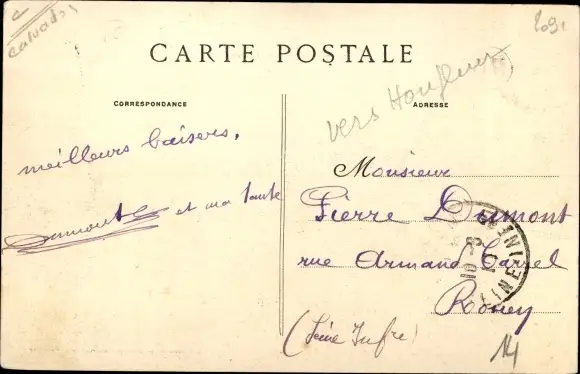 Calvados
CARTE POSTALE
CORRESPONDANCE
ADRESSE
vers Honfleur
meilleurs baisers.
Dumont et ma tante
Monsieur
Pierre Dumont
rue Armand Carrel
Rouen
(Seine Infre)
14